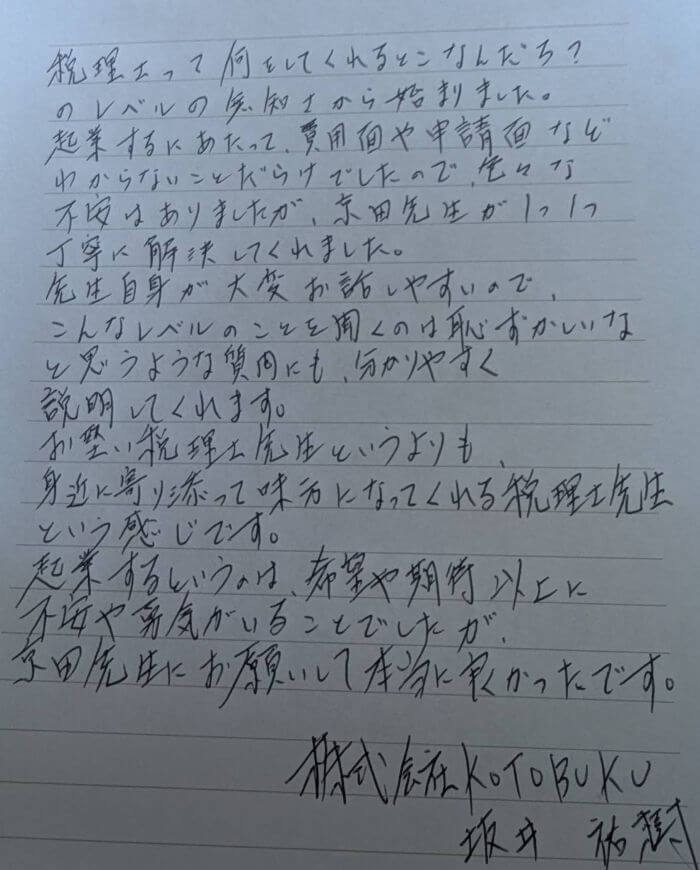 税理士って何をしてくれるとこなんだろ？
のレベルの無知さから始まりました。
起業するにあたって、費用面や申請面など
わからないことだらけでしたので、色々な
不安はありましたが、京田先生が1つ1つ
丁寧に解決してくれました。
先生自身が大変お話しやすいので、
こんなレベルのことを聞くのは恥ずかしいな
と思うような質問にも、分かりやすく
説明してくれます。
お堅い税理士先生というよりも、
身近に寄り添って味方になってくれる税理士先生
という感じです。
起業するというのは、希望や期待以上に
不安や勇気がいることでしたが、
京田先生にお願いして本当に良かったです。
株式会社KOTOBUKU
坂井 祐樹